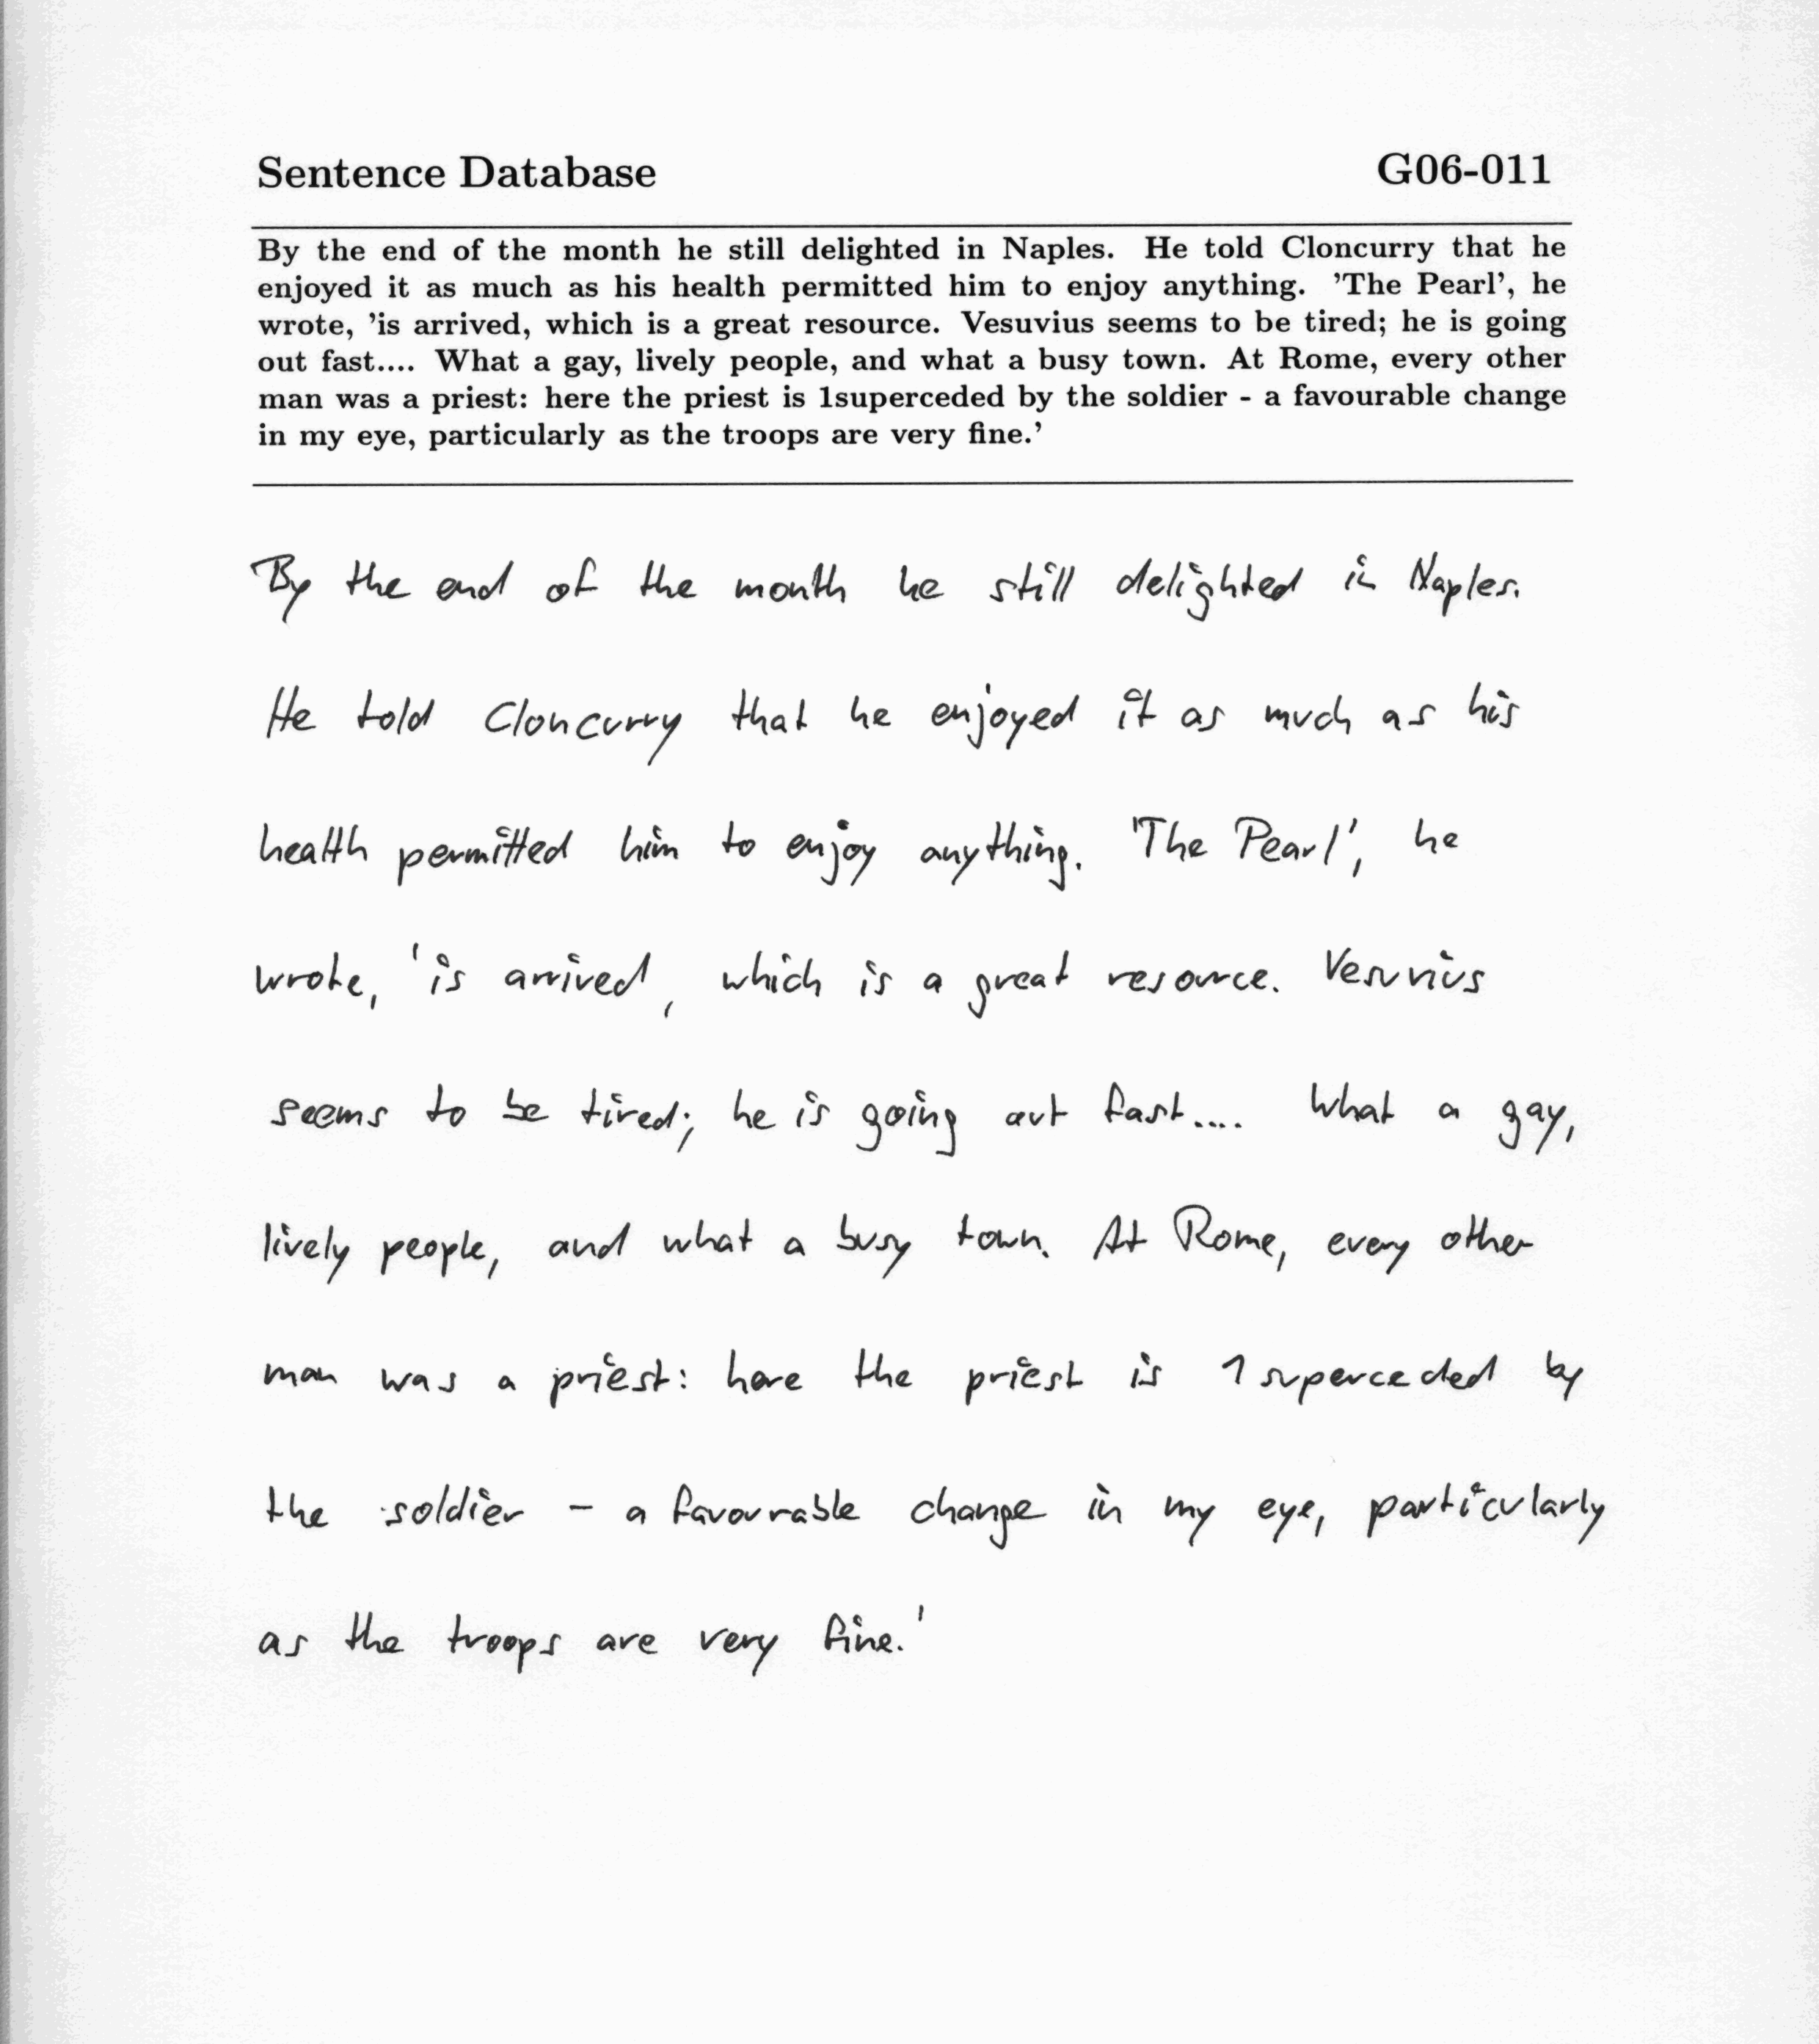 Sentence Database G06-011
By the end of the month he still delighted in Naples. He told Cloncurry that he
enjoyed it as much as his health permitted him to enjoy anything. 'The Pearl', he
wrote, 'is arrived, which is a great resource. Vesuvius seems to be tired; he is going
out fast.... What a gay, lively people, and what a busy town. At Rome, every other
man was a priest: here the priest is 1superceded by the soldier - a favourable change
in my eye, particularly as the troops are very fine.'
By the end of the month he still delighted in Naples.
He told Cloncurry that he enjoyed it as much as his
health permitted him to enjoy anything. 'The Pearl', he
wrote, 'is arrived, which is a great resource. Vesuvius
seems to be tired; he is going out fast.... What a gay,
lively people, and what a busy town. At Rome, every other
man was a priest: here the priest is 1superceded by
the soldier - a favourable change in my eye, particularly
as the troops are very fine.'